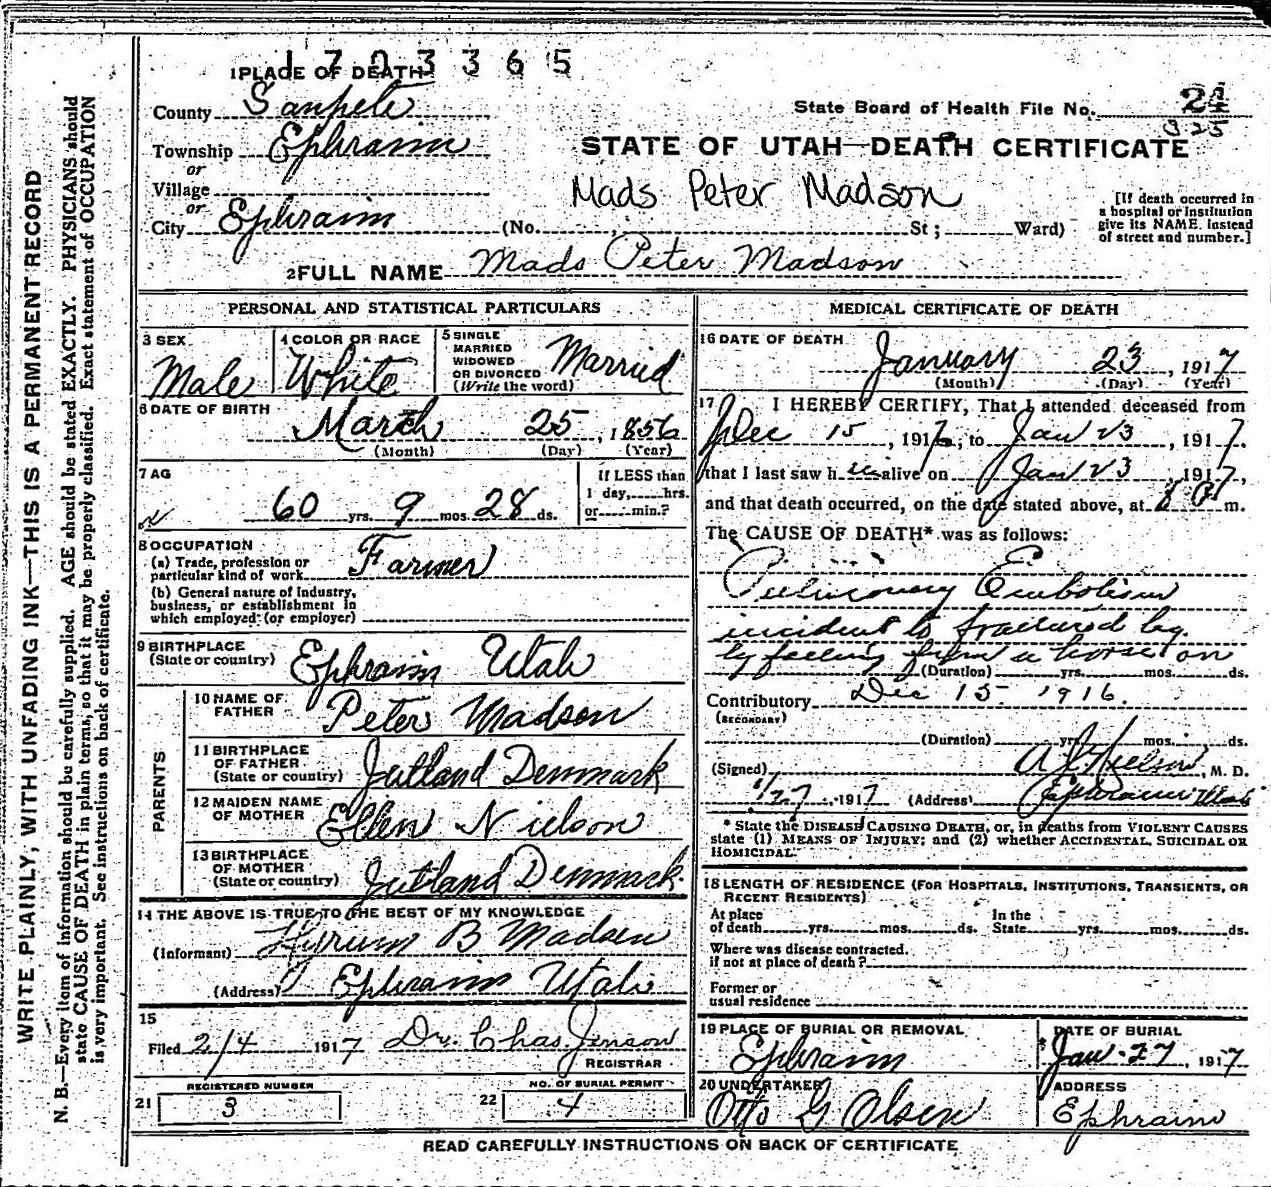 1703365
1 PLACE OF DEATH
County Sanpete
Township Ephraim
or
Village
or
City Ephraim
State Board of Health File No. 24
325
STATE OF UTAH—DEATH CERTIFICATE
Mads Peter Madson
(No. , St; Ward)
[If death occurred in
a hospital or institution
give its NAME. instead
of street and number.]
2 FULL NAME Mads Peter Madson
PERSONAL AND STATISTICAL PARTICULARS
3 SEX Male
4 COLOR OR RACE White
5 SINGLE
MARRIED
WIDOWED
OR DIVORCED
(Write the word) Married
6 DATE OF BIRTH
March 25, 1856
(Month) (Day) (Year)
7 AG
60 yrs. 9 mos. 28 ds.
If LESS than
1 day, hrs.
or min.?
8 OCCUPATION
(a) Trade, profession or
particular kind of work Farmer
(b) General nature of Industry,
business, or establishment in
which employed (or employer)
9 BIRTHPLACE
(State or country) Ephraim Utah
PARENTS
10 NAME OF
FATHER Peter Madson
11 BIRTHPLACE
OF FATHER
(State or country) Jutland Denmark
12 MAIDEN NAME
OF MOTHER Ellen Nielson
13 BIRTHPLACE
OF MOTHER
(State or country) Jutland Denmark
14 THE ABOVE IS TRUE TO THE BEST OF MY KNOWLEDGE
(Informant) Hyrum B Madsen
(Address) Ephraim Utah
15
Filed 2/4 1917 Dr. Chas. Jenson
REGISTRAR
REGISTERED NUMBER
21 3
NO. OF BURIAL PERMIT
22 4
MEDICAL CERTIFICATE OF DEATH
16 DATE OF DEATH
January 23, 1917
(Month) (Day) (Year)
17 I HEREBY CERTIFY, That I attended deceased from
Dec 15, 1916, to Jan 23, 1917.
that I last saw him alive on Jan 23, 1917,
and that death occurred, on the date stated above, at 8 P m.
The CAUSE OF DEATH* was as follows:
Pulmonary Embolism
incident to fractured leg.
by falling from a horse on
(Duration) yrs. mos. ds.
Contributory Dec 15 1916.
(SECONDARY)
(Duration) yrs. mos. ds.
(Signed) Nielson, M. D.
1/27 1917 (Address) Ephraim Utah
* State the DISEASE CAUSING DEATH, or, in deaths from VIOLENT CAUSES
state (1) MEANS OF INJURY; and (2) whether ACCIDENTAL, SUICIDAL OR
HOMICIDAL.
18 LENGTH OF RESIDENCE (FOR HOSPITALS, INSTITUTIONS, TRANSIENTS, OR
RECENT RESIDENTS)
At place
of death yrs. mos. ds.
In the
State yrs. mos. ds.
Where was disease contracted.
if not at place of death?
Former or
usual residence
19 PLACE OF BURIAL OR REMOVAL
Ephraim
DATE OF BURIAL
Jan. 27, 1917
20 UNDERTAKER
Otto G Olsen
ADDRESS
Ephraim
READ CAREFULLY INSTRUCTIONS ON BACK OF CERTIFICATE
WRITE PLAINLY, WITH UNFADING INK—THIS IS A PERMANENT RECORD
N. B.—Every item of information should be carefully supplied. AGE should be stated EXACTLY. PHYSICIANS should
state CAUSE OF DEATH in plain terms, so that it may be properly classified. Exact statement of OCCUPATION
is very important. See instructions on back of certificate.